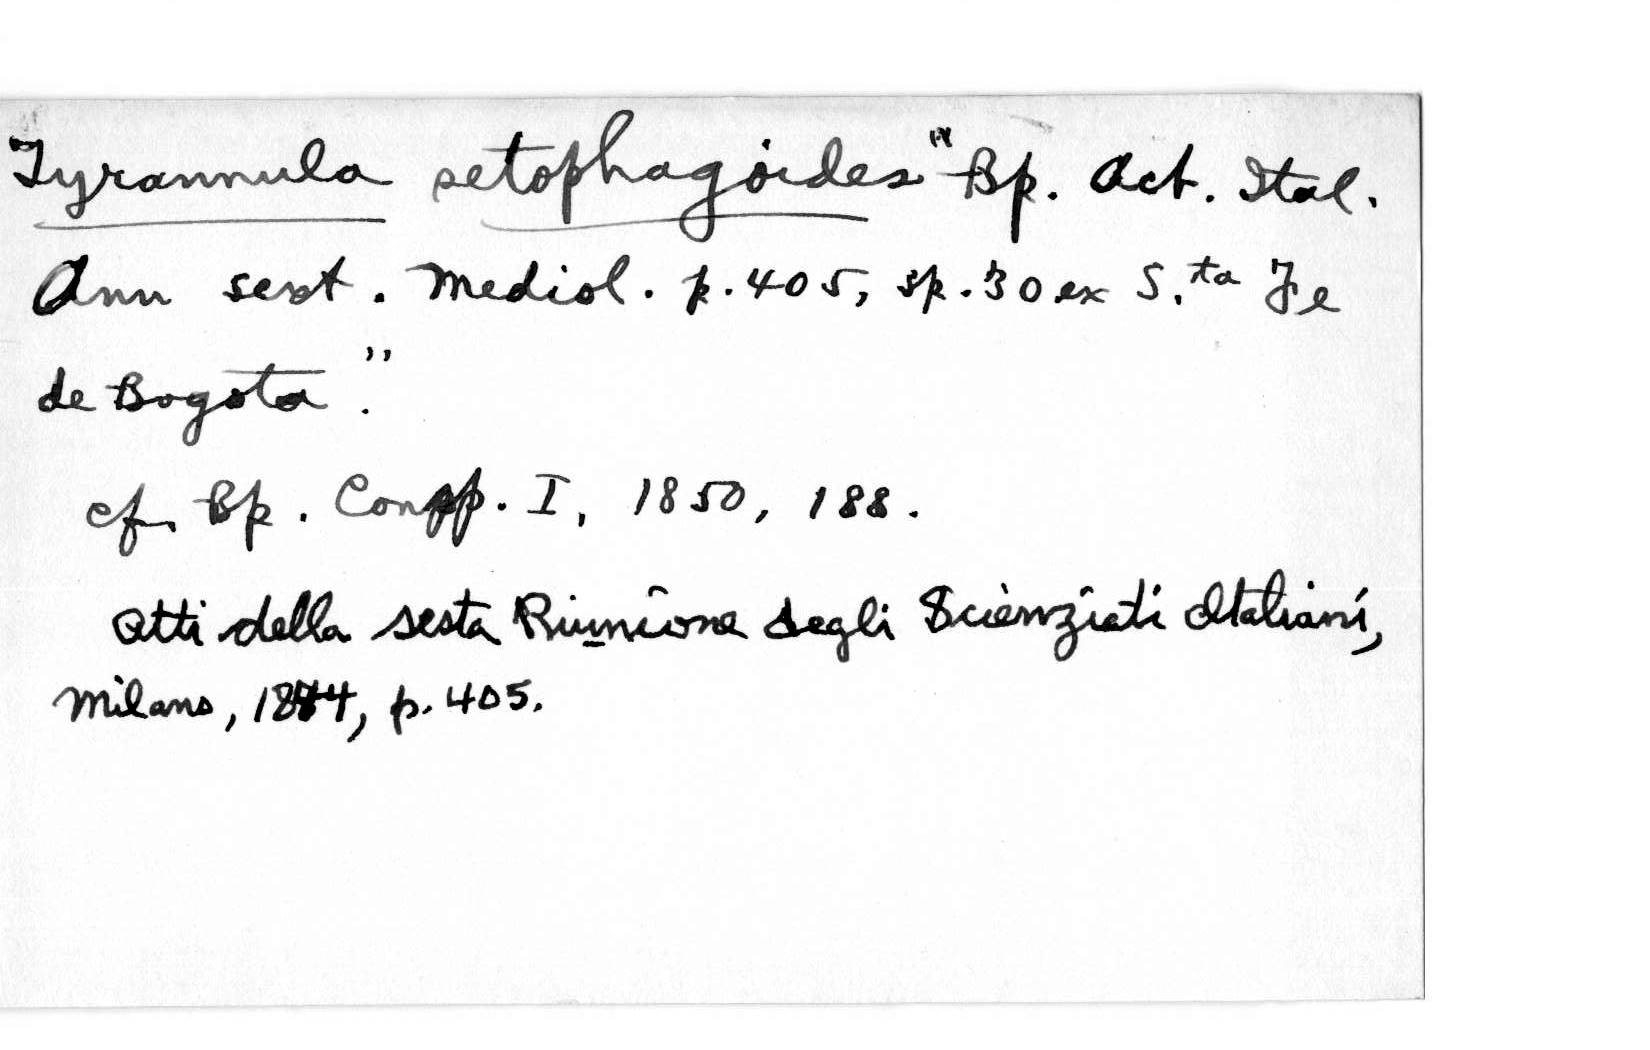 Tyrannula setophagoides "Bp. Act. Ital.
Ann sext. Mediol. p.405, sp.30 ex S.ta Fe
de Bogota."
cf. Bp. Consp. I, 1850, 188.
Atti della sesta Riunione degli Scienziati Italiani,
Milano, 1844, p. 405.